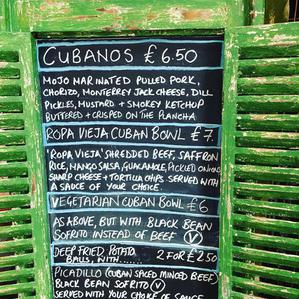 CUBANOS £6.50
MOJO MARINATED PULLED PORK,
CHORIZO, MONTERREY JACK CHEESE, DILL
PICKLES, MUSTARD + SMOKEY KETCHUP
BUTTERED + CRISPED ON THE PLANCHA
ROPA VIEJA CUBAN BOWL £7.
'ROPA VIEJA' SHREDDED BEEF, SAFFRON
RICE, MANGO SALSA, GUACAMOLE, PICKLED ONIONS
SHARP CHEESE + TORTILLA CHIPS. SERVED WITH
A SAUCE OF YOUR CHOICE.
VEGETARIAN CUBAN BOWL £6
AS ABOVE, BUT WITH BLACK BEAN
SOFRITO INSTEAD OF BEEF (V)
DEEP FRIED POTATO
BALLS, WITH...... 2 FOR £2.50
PICADILLO (CUBAN SPICED MINCED BEEF)
BLACK BEAN SOFRITO (V)
SERVED WITH YOUR CHOICE OF SAUCE